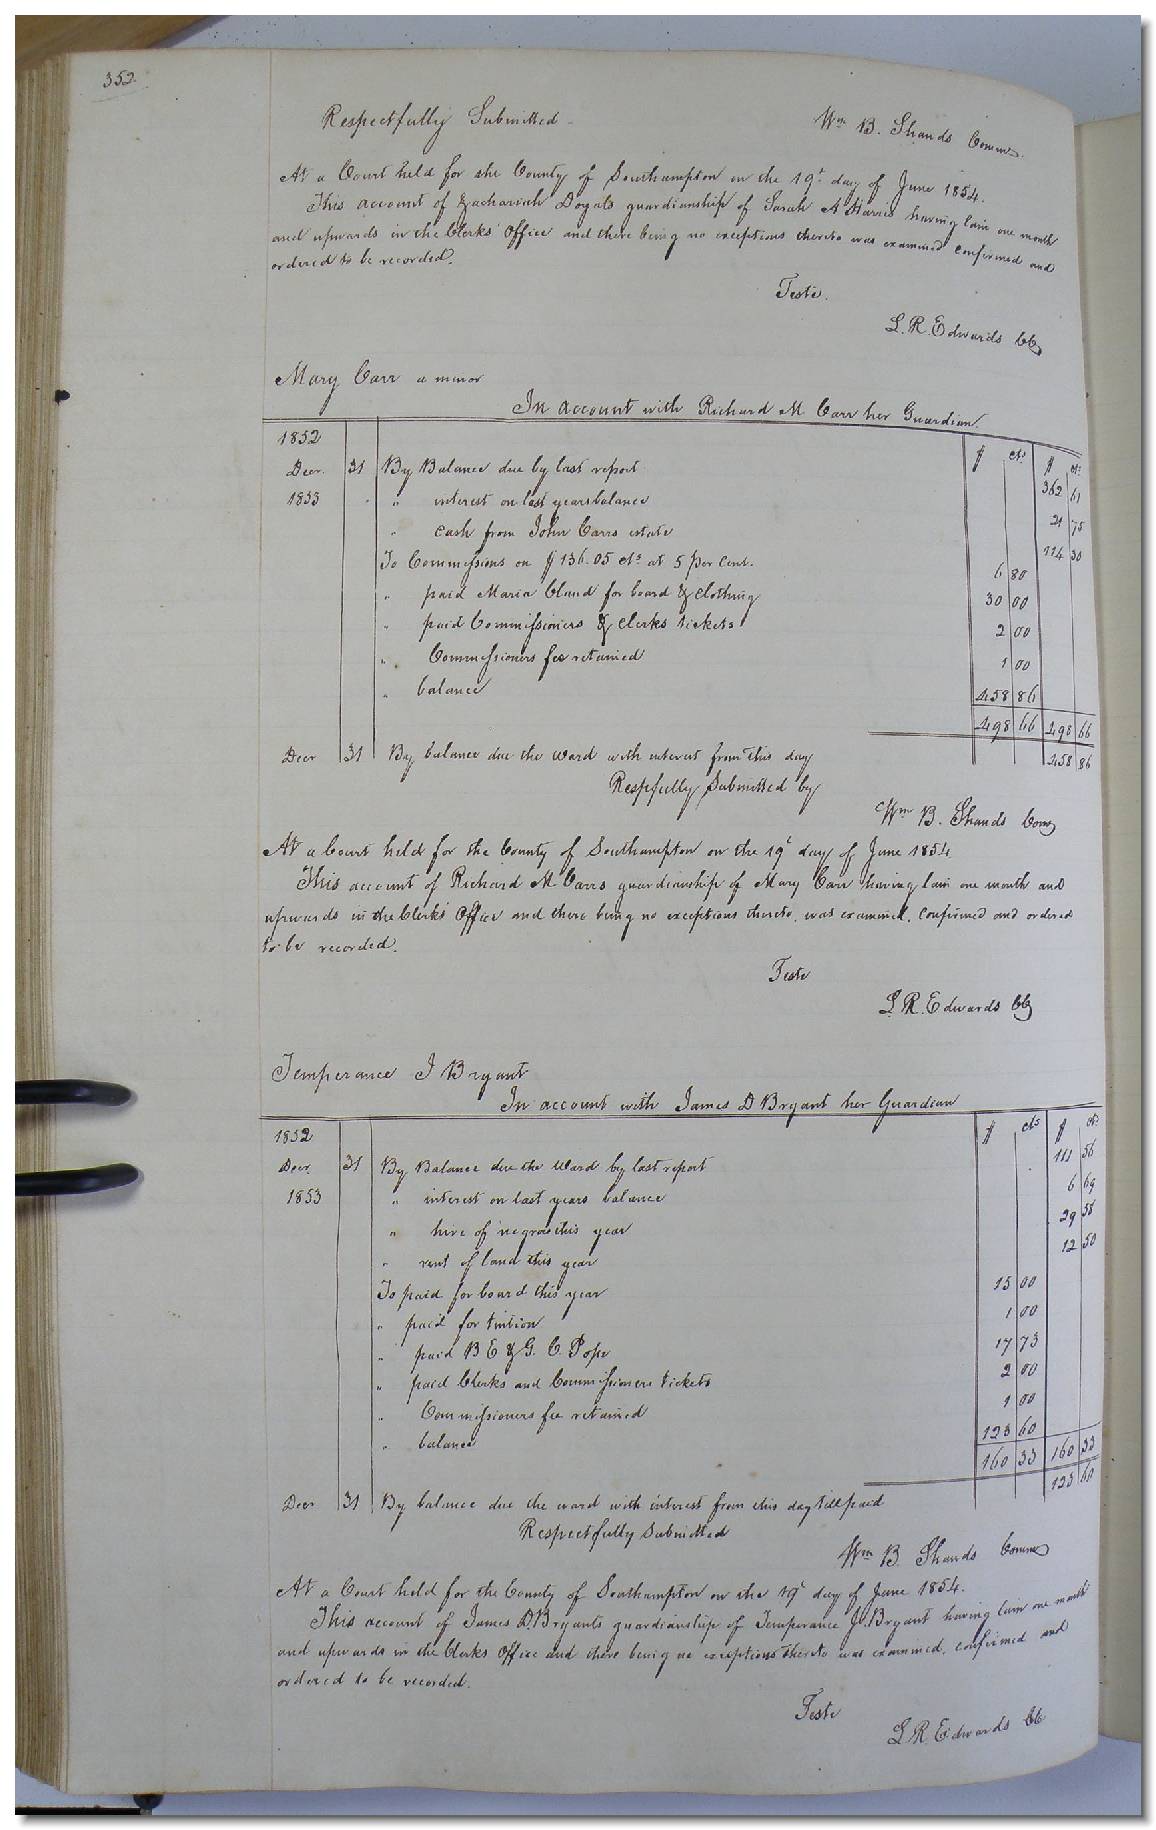 352
Respectfully Submitted Wm B. Shands Comms.
At a Court held for the County of Southampton on the 19t day of June 1854.
This account of Zachariah Doyals guardianship of Sarah A Harris having lain one month
and upwards in the Clerks' Office and there being no exceptions thereto was examined confirmed and
ordered to be recorded.
Teste.
L. R. Edwards CC
Mary Carr a minor
In account with Richard M Carr her Guardian.
1852 $ cts $ cts
Decr. 31 By Balance due by last report 362 61
1853 " interest on last years balance 21 75
" cash from John Carrs estate 114 30
To Commissions on $136.05 cts at 5 per Cent. 6 80
" paid Maria Bland for board & clothing 30 00
" paid Commissioners & Clerks tickets 2 00
" Commissioners fee retained 1 00
" balance 458 86
498 66 498 66
Decr 31 By balance due the Ward with interest from this day 458 86
Respfully Submitted by
Wm B. Shands Com
At a Court held for the County of Southampton on the 19t day of June 1854
This account of Richard M Carrs guardianship of Mary Carr having lain one month and
upwards in the Clerks' Office and there being no exceptions thereto, was examined, confirmed and ordered
to be recorded.
Teste
L. R. Edwards CC
Temperance J Bryant
In account with James D Bryant her Guardian
1852 $ cts $ cts
Decr. 31 By Balance due the Ward by last report 111 56
1853 " interest on last years balance 6 69
" hire of negroes this year 29 58
" rent of land this year 12 50
To paid for board this year 15 00
" paid for tuition 1 00
" paid B E & G. C. Pope 17 73
" paid Clerks and Commissioners tickets 2 00
" Commissioners fee retained 1 00
" balance 123 60
160 33 160 33
Decr 31 By balance due the ward with interest from this day till paid 123 60
Respectfully Submitted
Wm B. Shands Comms
At a Court held for the County of Southampton on the 19t day of June 1854.
This account of James D. Bryants guardianship of Temperance J. Bryant having lain one month
and upwards in the Clerks Office and there being no exceptions thereto was examined, confirmed and
ordered to be recorded.
Teste
L R. Edwards CC